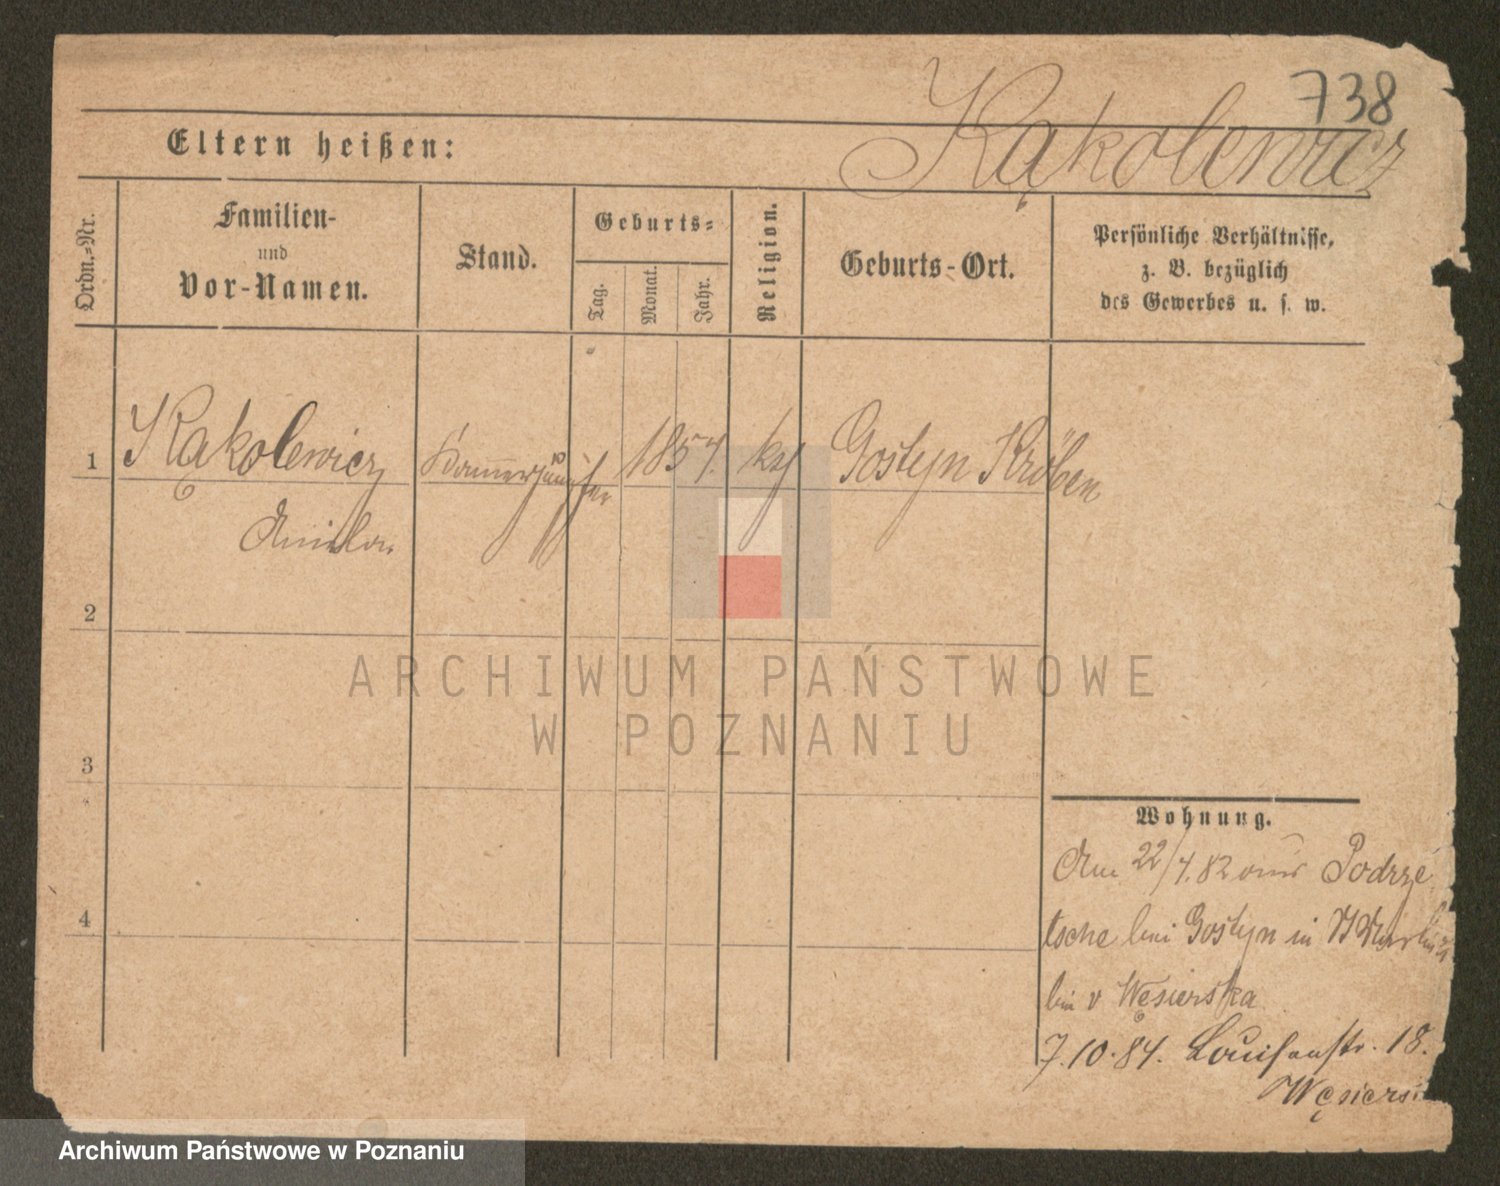 738
Kąkolewicz
Eltern heißen:
Ordn.=Nr.
Familien-
und
Vor-Namen.
Stand.
Geburts=
Tag.
Monat.
Jahr.
Religion.
Geburts-Ort.
Persönliche Verhältnisse,
z. B. bezüglich
des Gewerbes u. s. w.
1
Kąkolewicz Kammerjungfer 1857. kt Gostyn Kröben
Aniela.
2
ARCHIWUM PAŃSTWOWE
W POZNANIU
3
4
Wohnung.
Am 22/4.82 aus Podrze
tsche bei Gostyn in
bei v Węsierska
7.10.84. Louisenstr. 18.
Archiwum Państwowe w Poznaniu